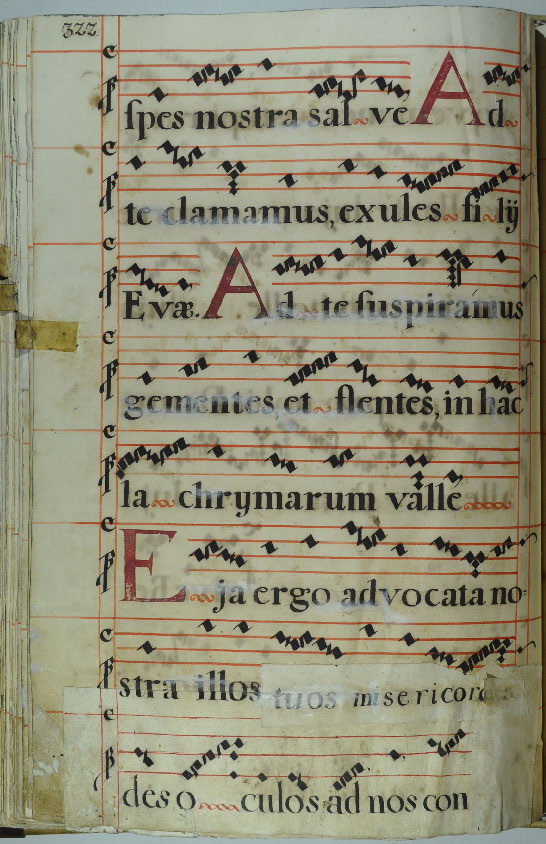 322
spes nostra salve Ad
te clamamus, exules filij
Evæ. Ad te suspiramus
gementes, et flentes, in hac
la chrymarum valle
Eja ergo advocata no=
stra illos tuos misericor
des oculos ad nos con